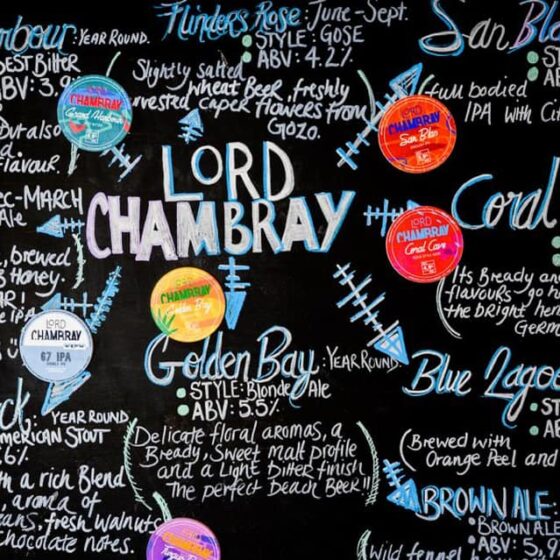 rbour: YEAR ROUND.
BEST Bitter
ABV: 3.9
But also
flavour.
Flinders Rose: June-Sept.
STYLE: GOSE
ABV: 4.2%
Slightly salted
wheat Beer, freshly
harvested caper flowers from
Gozo.
San Bla
full bodied
IPA with
LORD
CHAMBRAY
Grand Harbour
LORD
CHAMBRAY
San Blas
LORD
CHAMBRAY
ec-MARCH
Ale
brewed
& Honey.
Coral
LORD
CHAMBRAY
Coral Cave
Its Bready an
flavours go h
the bright he
Germ
CHAMBRAY
Golden Bay
LORD
CHAMBRAY
67 IPA
Golden Bay: YEAR ROUND
STYLE: Blonde Ale
ABV: 5.5%
Delicate floral aromas, a
Bready, sweet malt profile
and a light Bitter finish
The perfect Beach Beer!!
Blue Lagoo
(Brewed with
Orange Peel and
ck: YEAR ROUND
MERICAN STOUT
.6%
h a rich Blend
aroma of
ans, fresh walnuts
chocolate notes.
CHAMBRAY
BROWN ALE:
BROWN ALE
ABV: 5.
wild fennel